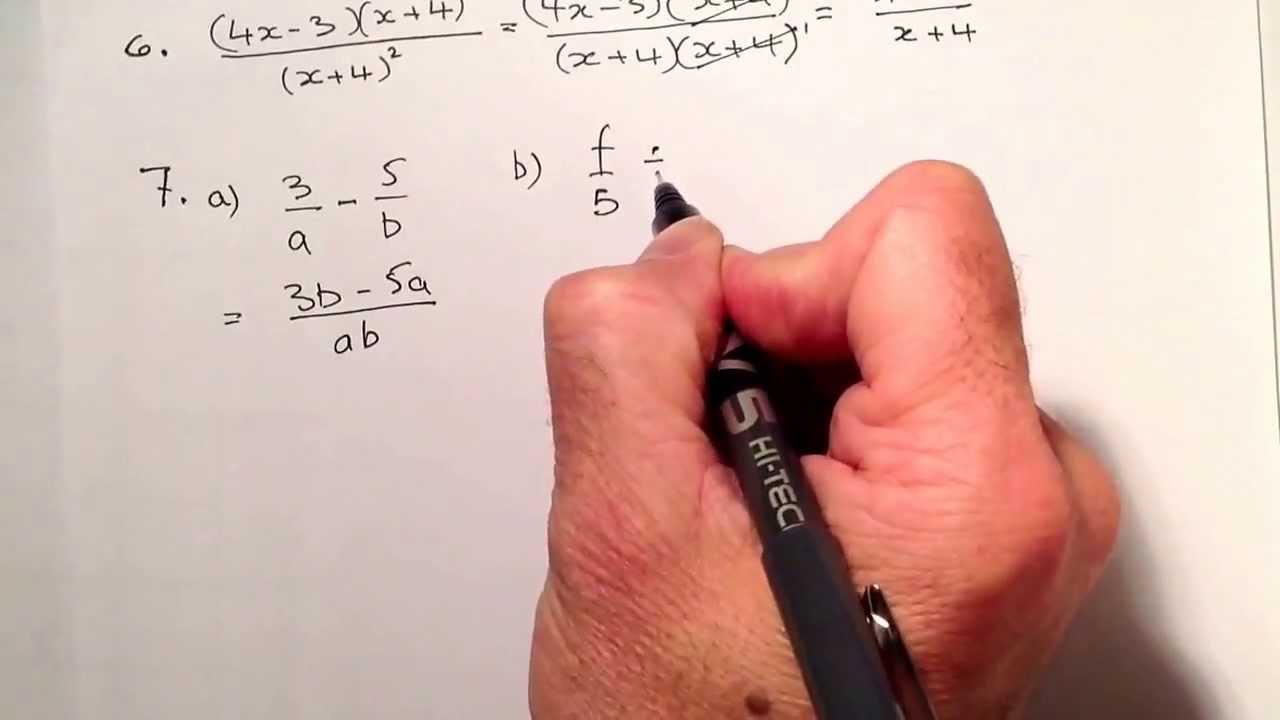 6. (4x-3)(x+4) / (x+4)² = (4x-3)(x+4) / (x+4)(x+4) = / x+4
7. a) 3/a - 5/b b) f/5 ÷
= 3b - 5a / ab
5 HI-TEC